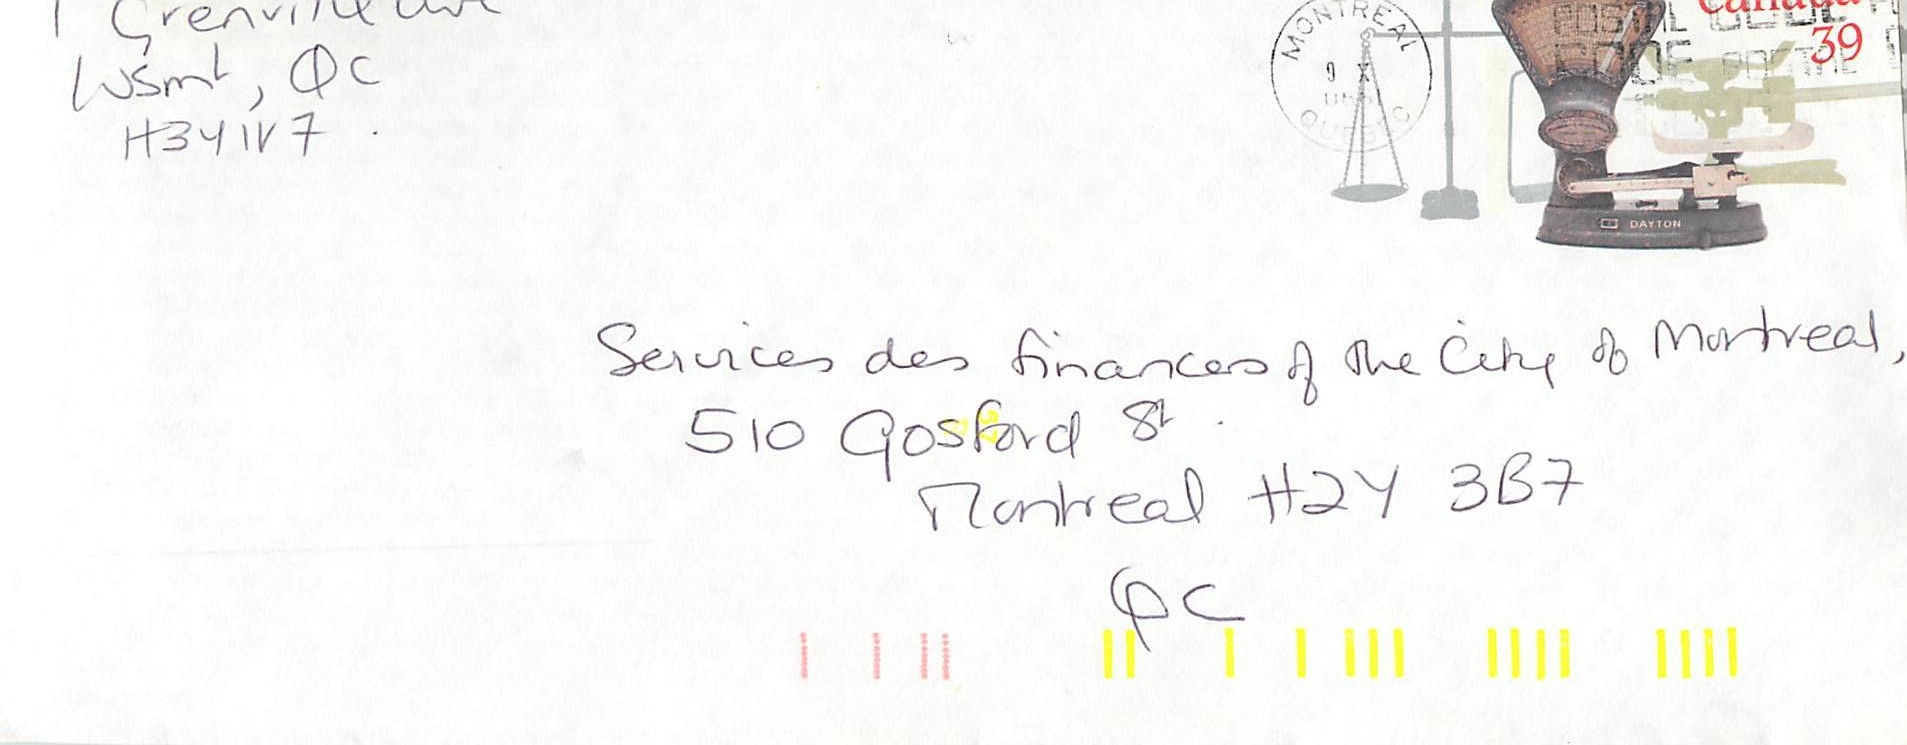 1 Grenville ave
Wsmt, QC
H3Y1V7.
MONTREAL
QUEBEC
Canada
39
POSTAL CODE
CODE POSTAL
DAYTON
Services des finances of the City of Montreal,
510 Gosford St.
Montreal H2Y 3B7
QC